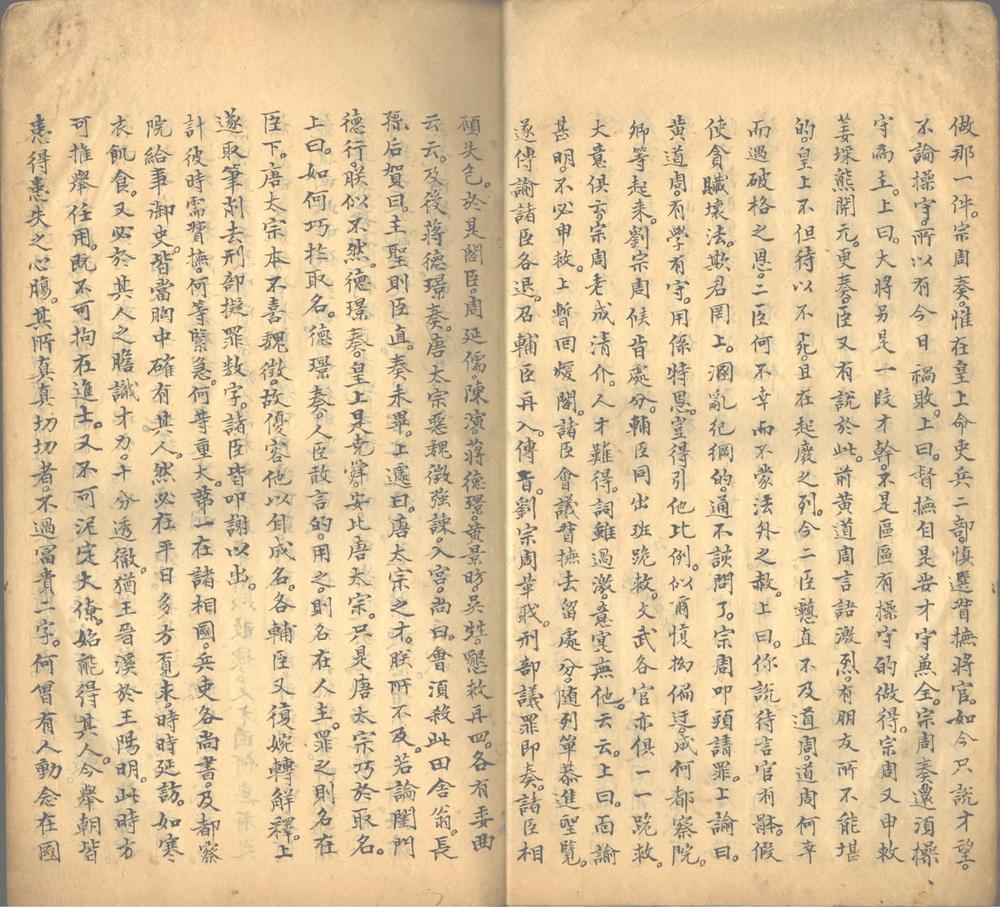 做那一件。宗周奏。惟在皇上命吏兵二部慎選督撫將官。如今只說才望。
不論操守。所以有今日禍敗。上曰。督撫自是要才守兼全。宗周奏還須操
守為主。上曰。大將另是一段才幹。不是區區有操守的做得。宗周又申救
姜埰熊開元。更奏。臣又有說於此。前黃道周言語激烈。有朋友所不能堪
的。皇上不但待以不死。且在起廢之列。今二臣戇直不及道周。道周何幸
而遇破格之恩。二臣何不幸而不蒙法外之赦。上曰。你說待言官有體。假
使貪贓壞法。欺君罔上。溷亂紀綱的。通不該問了。宗周叩頭請罪。上諭曰。
黃道周。有學有守。用係特恩。豈得引他比例。似爾愎拗偏迂。成何都察院。
卿等起來。劉宗周候旨處分。輔臣同出班跪救。文武各官亦俱一一跪救。
大意俱言。宗周老成清介。人才難得。詞雖過激。意寔無他。云云。上曰。面諭
甚明。不必申救。上暫回煖閣。諸臣會議督撫去留處分。隨列單恭進聖覽。
遂傳諭諸臣各退。召輔臣再入。傳旨。劉宗周革職。刑部議罪即奏。諸臣相
顧失色。於是閣臣。周延儒。陳演。蔣德璟。黃景昉。吳甡。懇救再四。各有委曲
云云。及後蔣德璟奏。唐太宗惡魏徵強諫。入宮。尚曰。會須殺此田舍翁。長
孫后賀曰。主聖則臣直。奏未畢。上遽曰。唐太宗之才。朕所不及。若論閨門
德行。朕似不然。德璟奏。皇上是堯舜。安比唐太宗。只是唐太宗巧於取名。
上曰。如何巧於取名。德璟奏。人臣敢言的。用之。則名在人主。罪之則名在
臣下。唐太宗本不喜魏徵。故優容他以自成名。各輔臣又復婉轉解釋。上
遂取筆削去刑部擬罪数字。諸臣皆叩謝以出。
計彼時需督撫。何等緊急。何等重大。第一在諸相國。兵吏各尚書。及都察
院給事御史。皆當胸中確有其人。然必在平日。多方覓求。時時延訪。如寒
衣飢食。又必於其人之膽識才力。十分透徹。猶王晉溪於王陽明。此時方
可推舉任用。既不可拘在進士。又不可泥定大僚。始能得其人。今舉朝皆
患得患失之心腸。其所真真切切者。不過富貴二字。何曾有人動念在國